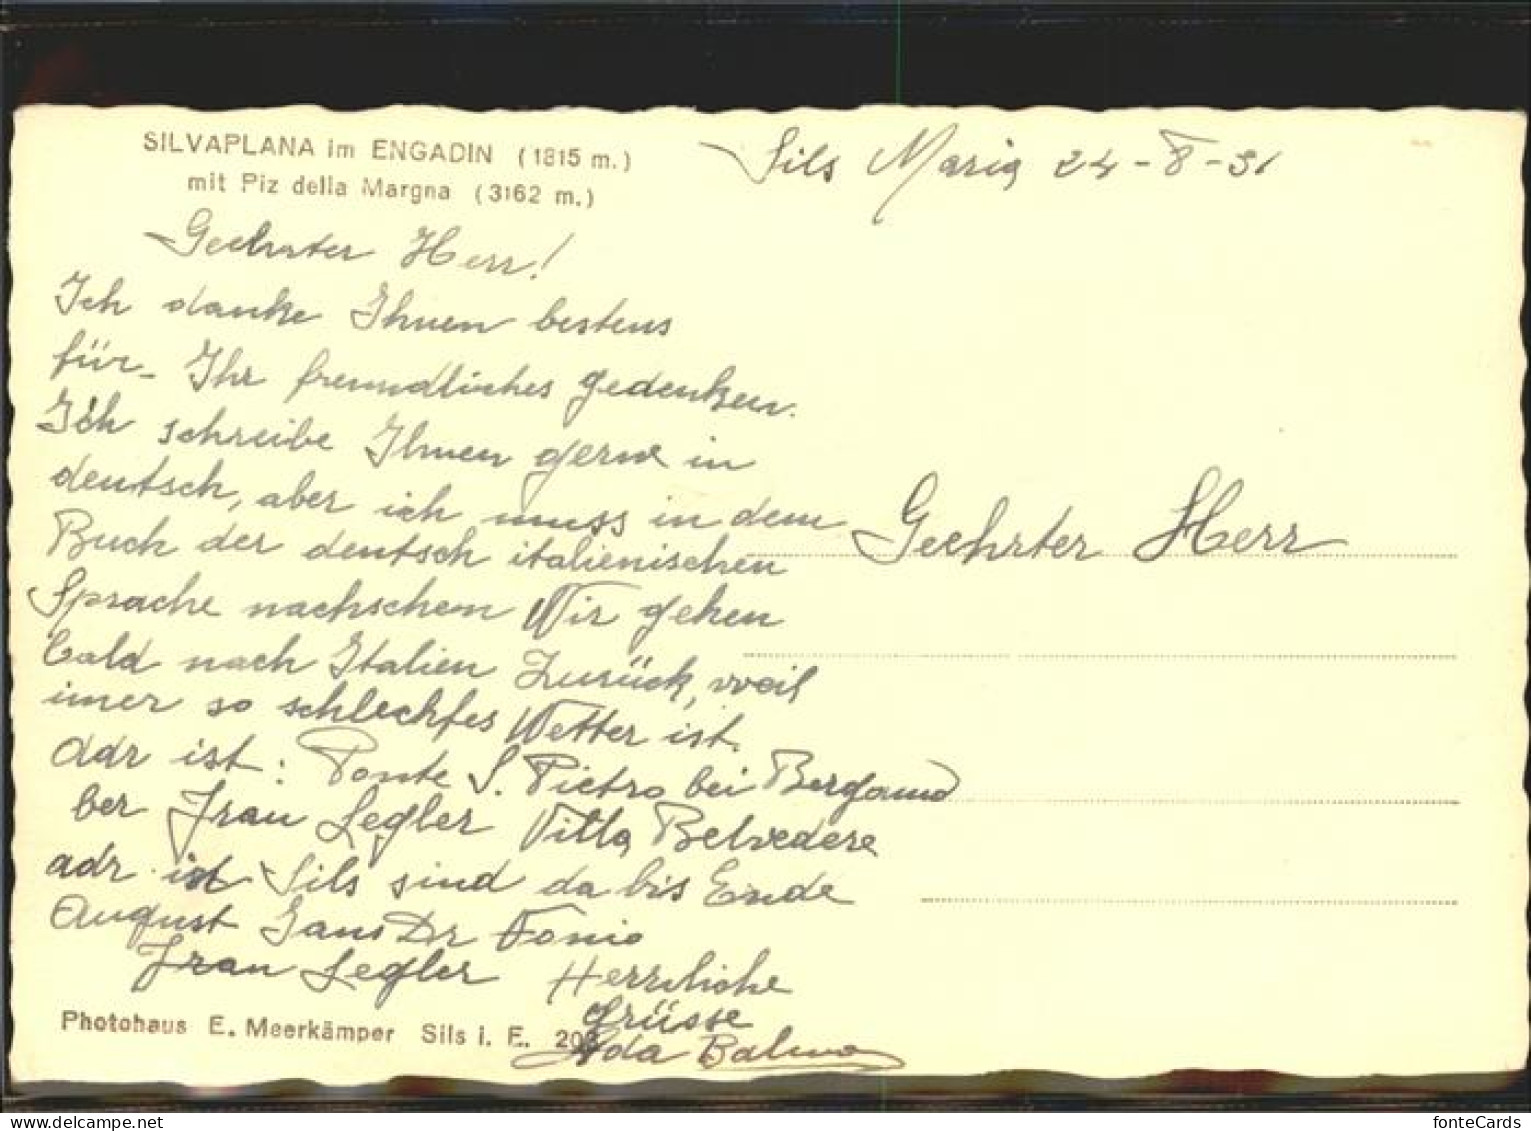 SILVAPLANA im ENGADIN (1815 m.)
mit Piz della Margna (3162 m.)
Sils Maria 24-8-31
Geehrter Herr!
Ich danke Ihnen bestens
für Ihr freundliches gedenken.
Ich schreibe Ihnen gerne in
deutsch, aber ich muss in dem
Buch der deutsch italienischen
Sprache nachschem Wir gehen
bald nach Italien Zurück, weil
imer so schlechtes Wetter ist.
adr ist: Ponte S. Pietro bei Bergamo
ber Frau Legler Villa Belvedere
adr ist Sils sind da bis Ende
August Dr Tonio
Frau Legler Herrliche
Grüsse
Ada
Geehrter Herr
Photohaus E. Meerkämper Sils i. E.
fonteCards